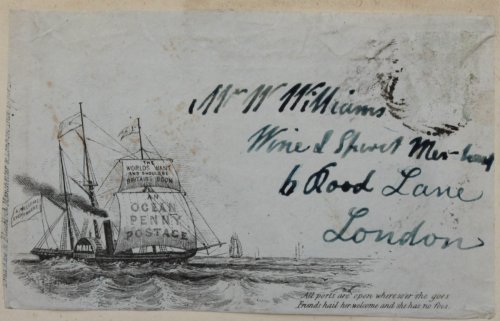 Mr W Williams
Wine & Spirit Mer-hant
6 Rood Lane
London
THE
WORLD'S WANT
AND SHOULD BE
BRITAIN'S BOON
AN
OCEAN
PENNY
POSTAGE
All ports are open wheresoe'er she goes
Friends hail her welcome and she has no foes